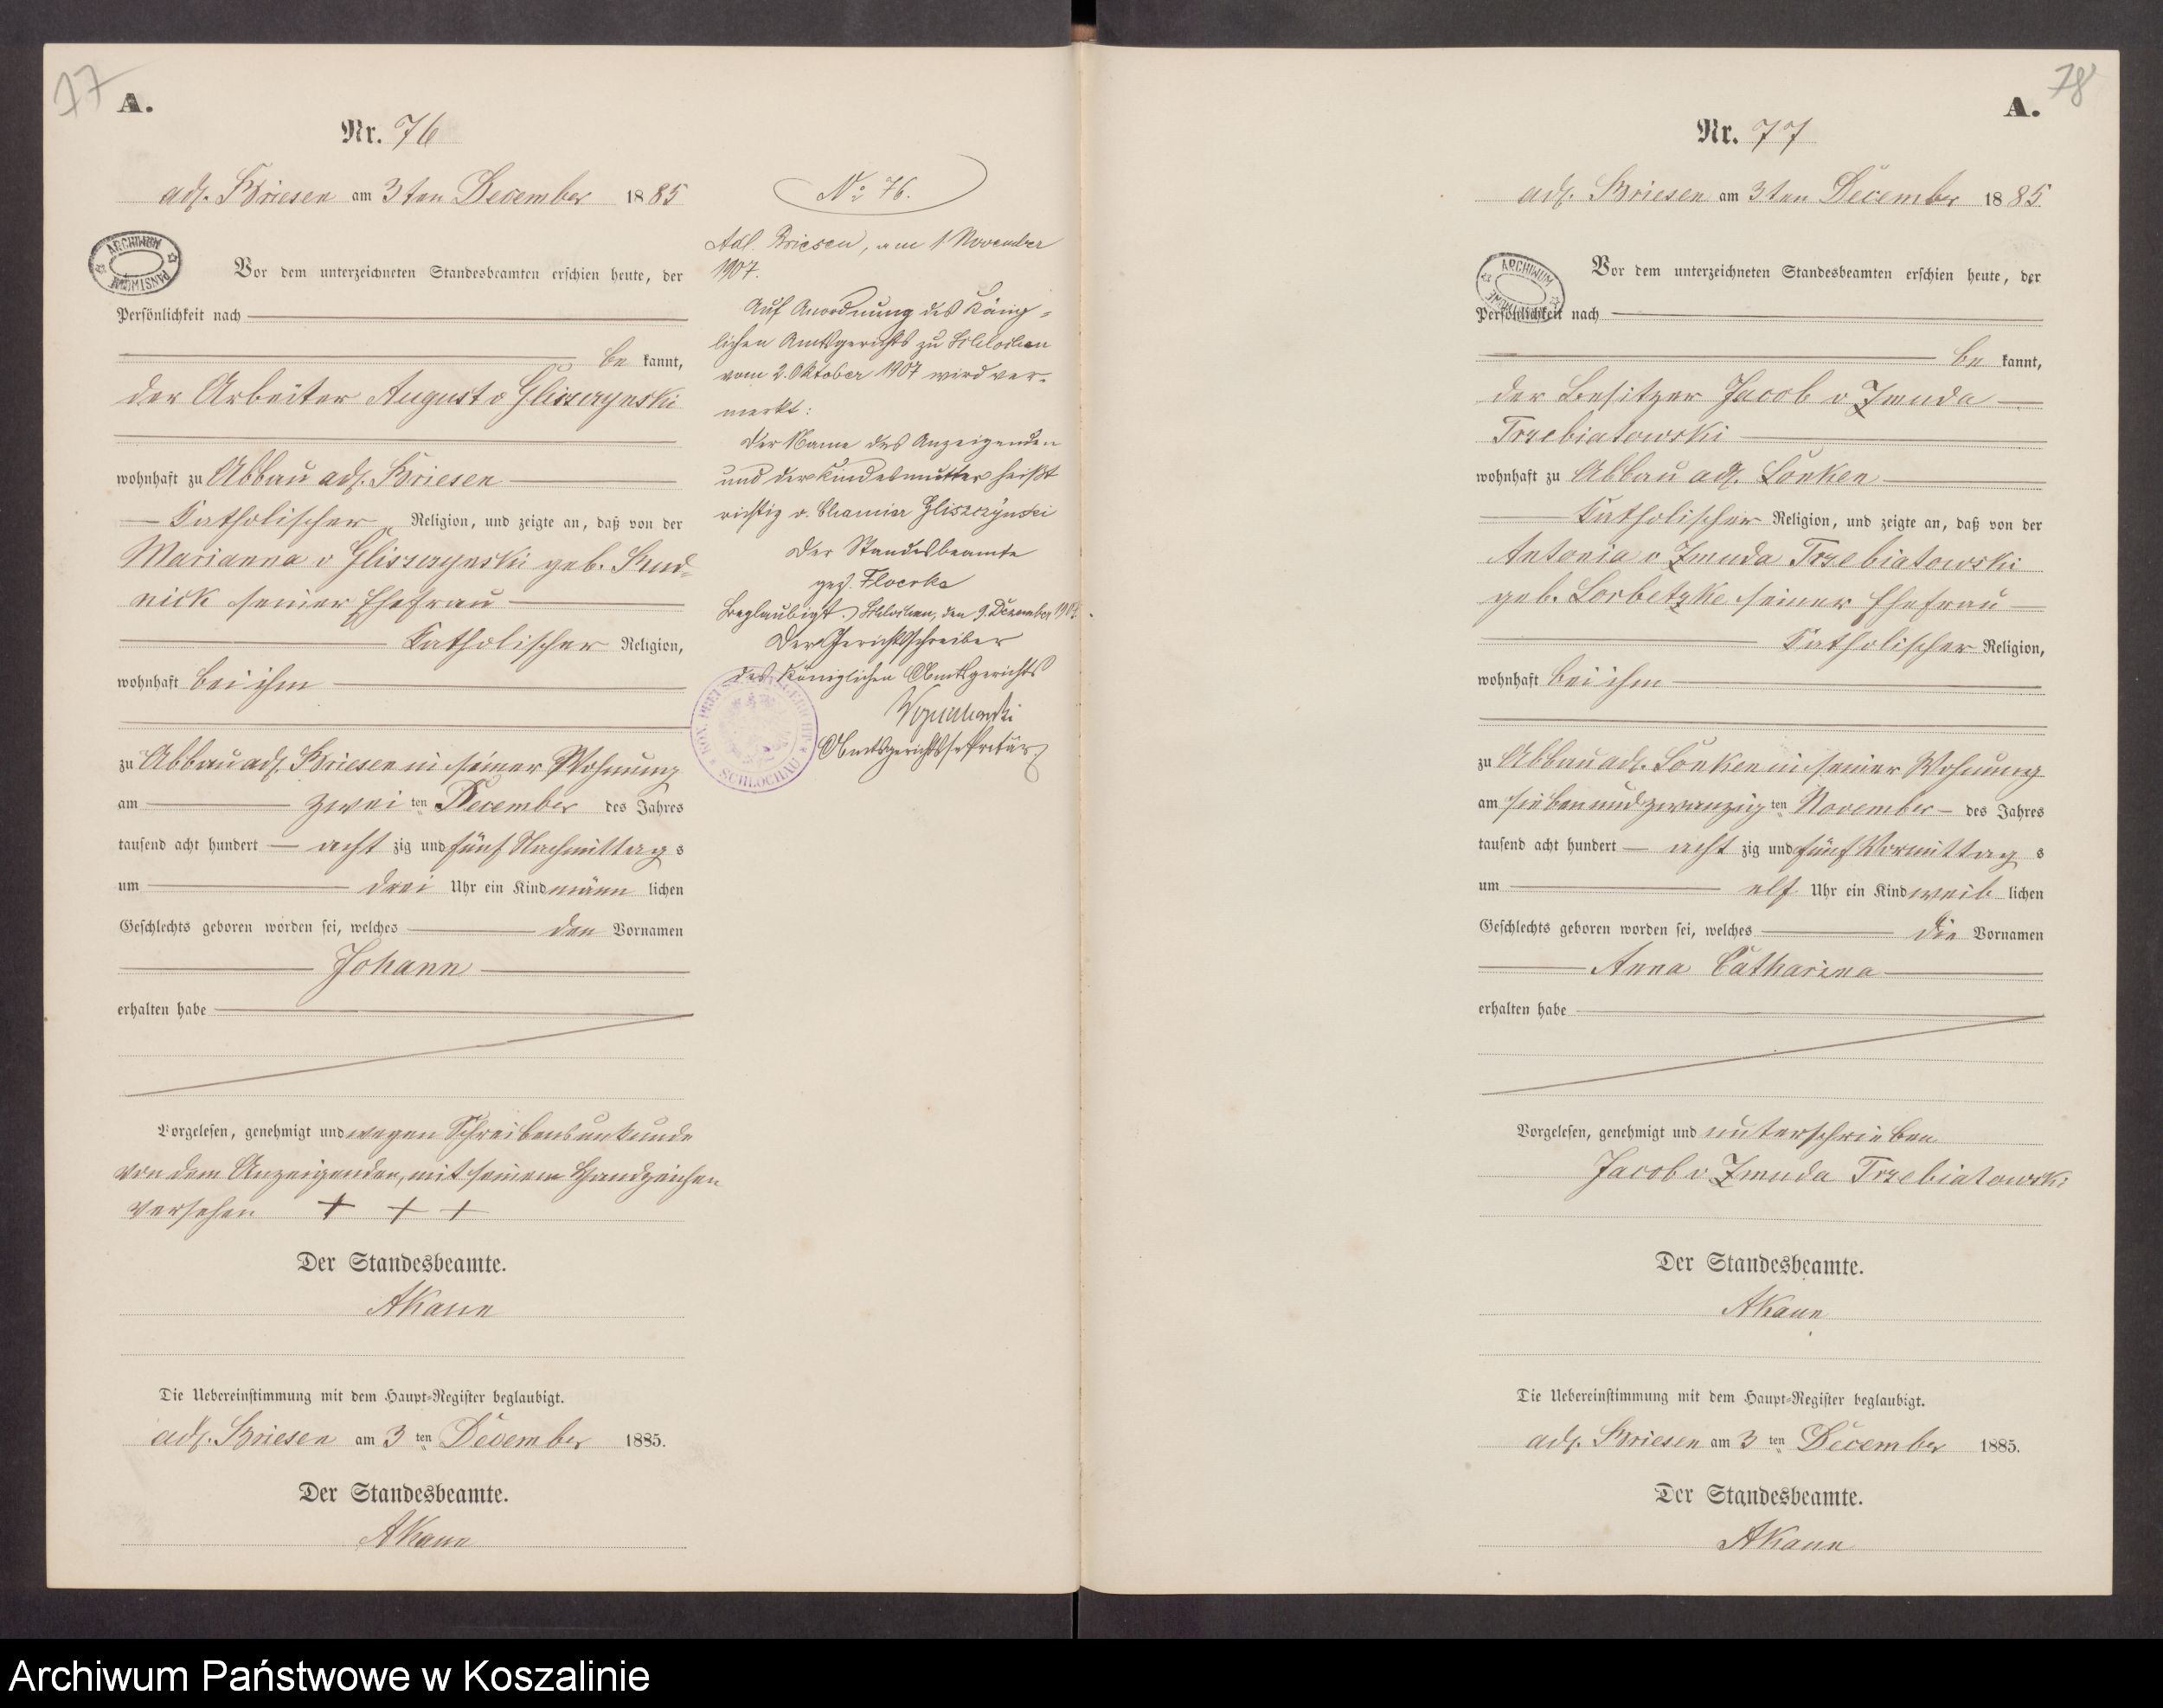 77
A.
Nr. 76
adl. Briesen am 3ten December 1885
ARCHIWUM
Vor dem unterzeichneten Standesbeamten erschien heute, der
Persönlichkeit nach
be kannt,
der Arbeiter August v Gliszczynski
wohnhaft zu Abbau adl. Briesen
Katholischer Religion, und zeigte an, daß von der
Marianna v Gliszczynski geb. Rud=
nick seiner Ehefrau
Katholischer Religion,
wohnhaft bei ihm
zu Abbau adl. Briesen in seiner Wohnung
am zwei ten December des Jahres
tausend acht hundert acht zig und fünf Nachmittags
um drei Uhr ein Kind männ lichen
Geschlechts geboren worden sei, welches den Vornamen
Johann
erhalten habe
Vorgelesen, genehmigt und wegen Schreibensunkunde
von dem Anzeigenden, mit seinem Handzeichen
versehen + + +
Der Standesbeamte.
AKaun
Die Uebereinstimmung mit dem Haupt-Register beglaubigt.
adl. Briesen am 3 ten December 1885.
Der Standesbeamte.
AKaun
No 76.
Adl. Briesen, am 1 November
1907.
Auf Anordnung des König=
lichen Amtsgerichts zu Schlochau
vom 2. Oktober 1907 wird ver-
merkt:
Der Name des Anzeigenden
und der Kindesmutter heißt
richtig v. Chamier Gliszczynski
Der Standesbeamte
gez. Floerke
Beglaubigt. Schlochau, den 9. Dezember 1907.
Der Gerichtsschreiber
des Königlichen Amtsgerichts
Amtsgerichtssekretär
SCHLOCHAU
78
A.
Nr. 77
adl. Briesen am 3ten December 1885
ARCHIWUM
Vor dem unterzeichneten Standesbeamten erschien heute, der
Persönlichkeit nach
be kannt,
der Besitzer Jacob v Zmuda
Trzebiatowski
wohnhaft zu Abbau adl. Lonken
Katholischer Religion, und zeigte an, daß von der
Antonia v Zmuda Trzebiatowski
geb. Lorbetzke seiner Ehefrau
Katholischer Religion,
wohnhaft bei ihm
zu Abbau adl. Lonken in seiner Wohnung
am sieben und zwanzig ten November des Jahres
tausend acht hundert acht zig und fünf Vormittags
um elf Uhr ein Kind weib lichen
Geschlechts geboren worden sei, welches die Vornamen
Anna Catharina
erhalten habe
Vorgelesen, genehmigt und unterschrieben
Jacob v Zmuda Trzebiatowski
Der Standesbeamte.
AKaun
Die Uebereinstimmung mit dem Haupt-Register beglaubigt.
adl. Briesen am 3 ten December 1885.
Der Standesbeamte.
AKaun
Archiwum Państwowe w Koszalinie